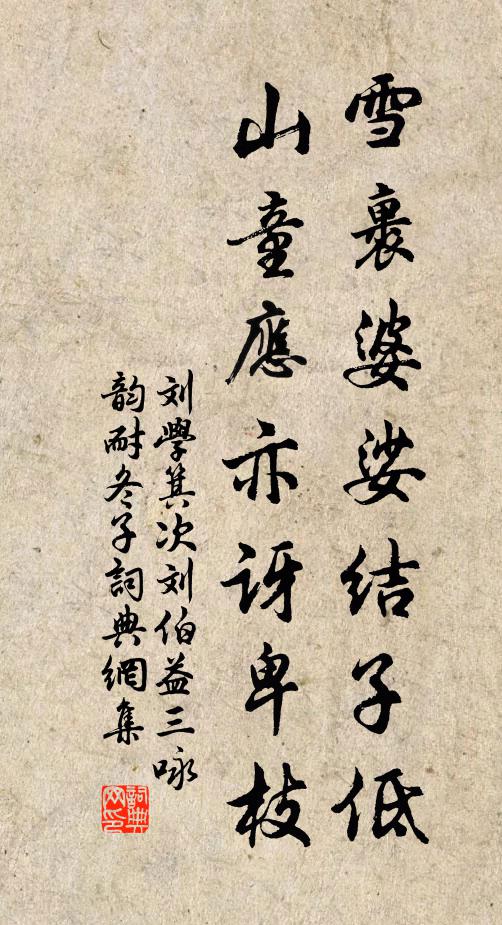 雪裹婆娑结子低
山童應亦讶卑枝
刘學箕次刘伯益三咏
韵耐冬子詞典網集
詞典
网印